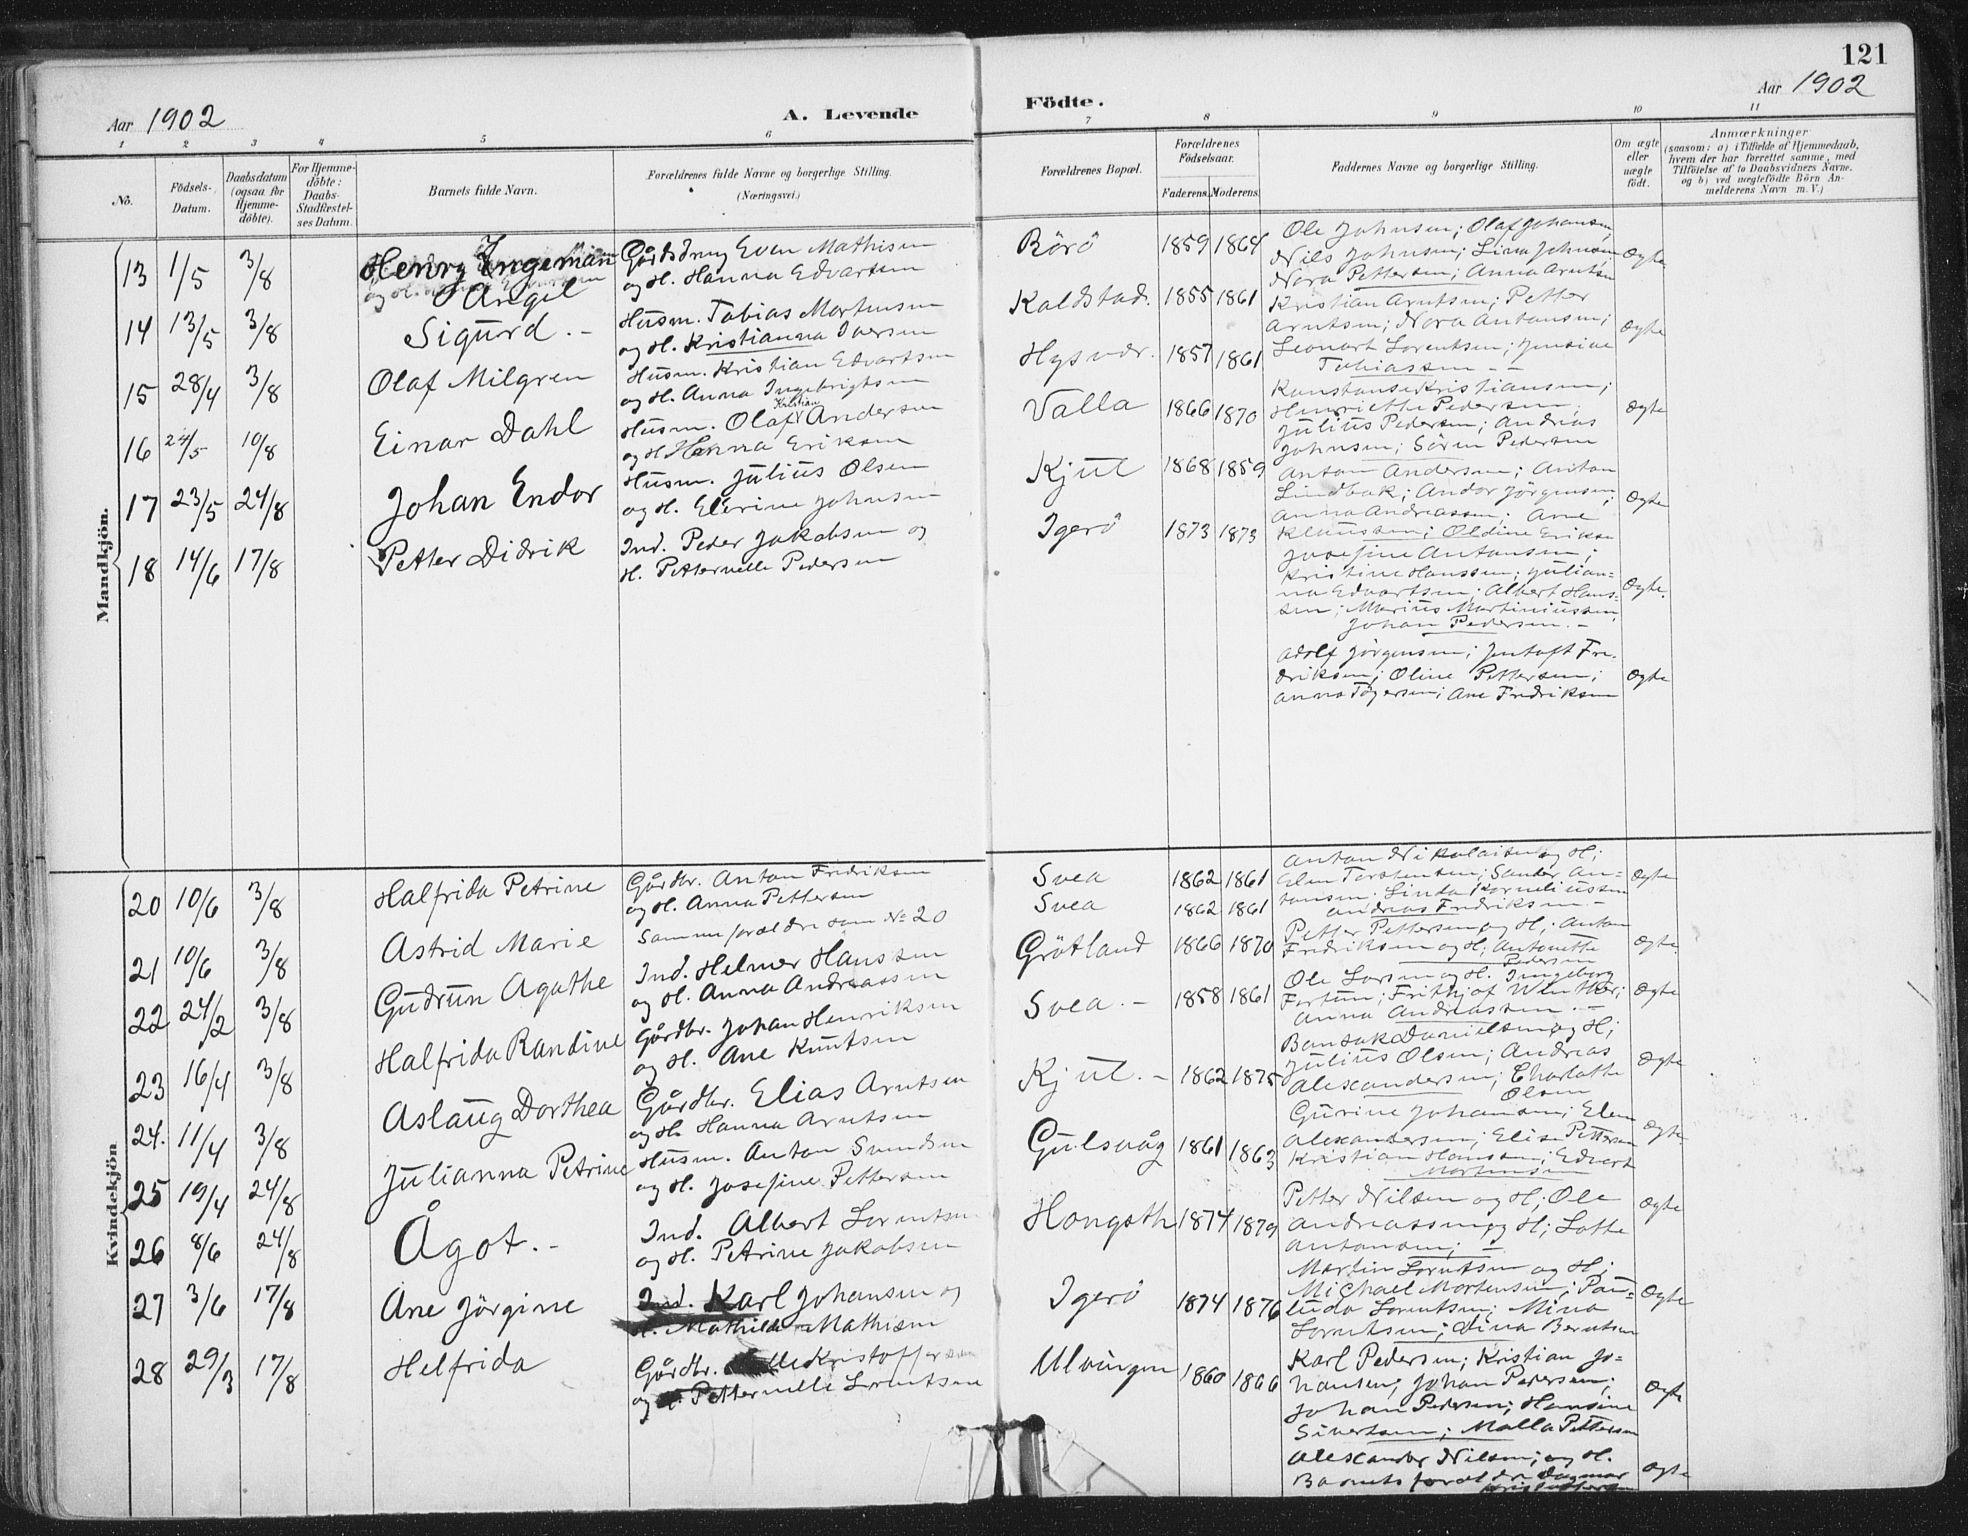 121
Aar 1902
A. Levende
Födte.
Aar 1902
1 2 3 4 5 6 7 8 9 10 11
No.
Födsels-Datum.
Daabsdatum (ogsaa for Hjemme-döbte).
For Hjemme-döbte: Daabs-Stadfæstel-ses Datum.
Barnets fulde Navn.
Forældrenes fulde Navne og borgerlige Stilling.
(Næringsvei.)
Forældrenes Bopæl.
Forældrenes Födselsaar.
Faderens. Moderens.
Faddernes Navne og borgerlige Stilling.
Om ægte eller uægte födt.
Anmærkninger
(saasom: a) i Tilfælde af Hjemmedaab,
hvem der har forrettet samme, med
Tilföielse af to Daabsvidners Navne.
og b) ved uægtefödte Börn An-
melderens Navn m. V.)
Mandkjön.
13 1/5 3/8 Henry Ingeman Angel
og H. Hanna Edvartsen
Börö 1859 1864
Ole Johnsen; Olaf Johansen;
Nils Johnsen; Lina Johnsen
Nora Pettersen; Anna Arntsen
Ægte
14 13/5 3/8 Sigurd. -
Husm. Tobias Mortensen
og H. Kristianna Iversen
Kaldstad. 1855 1861
Kristian Arntsen; Petter
Arntsen; Nora Antonsen;
Leonart Lorentsen; Jensine
Tobiassen - -
Ægte
15 28/4 3/8 Olaf Milgren
Husm. Kristian Edvartsen
og H. Anna Ingebrigtsen
Hysvær. 1857 1861
Konstanse Kristiansen;
Henriette Pedersen;
Julius Pedersen; Andreas
Johnsen; Sören Pedersen
Ægte
16 24/5 10/8 Einar Dahl
Kristian
Husm. Olaf Andersen
og H Hanna Eriksen
Valla 1866 1870
Anton Andersen; Anton
Lindbak; Andor Jörgensen;
Anna Andreassen; Ane
Klaussen; Oldine Eriksen
Ægte
17 23/5 24/8 Johan Endor
Husm. Julius Olsen
og H. Elerine Johnsen
Kjul 1868 1859
Josefine Antonsen;
Kristine Hanssen; Julian=
na Edvartsen; Albert Hans-
sen; Marius Martiniussen;
Johan Pedersen. -
Ægte.
18 14/6 17/8 Petter Didrik
Ind. Peder Jakobsen og
H. Petternelle Pedersen
Igerö 1873 1873
Adolf Jörgensen; Jentoft Fre-
driksen; Oline Pettersen;
Anna Tögersen; Ane Fredriksen
Ægte
Kvindekjön
20 10/6 3/8 Halfrida Petrine
Gårdbr. Anton Fredriksen
og H. Anna Pettersen
Svea 1862 1861
Anton Nikolaisen og H;
Elen Torstensen; Sander An=
tonsen; Linda Korneliussen
Andreas Fredriksen. -
Ægte
21 10/6 3/8 Astrid Marie
Samme forældre som No 20
Svea 1862 1861
Petter Pettersen og H; Anton
Fredriksen og H; Antonette
Pedersen
Ægte
22 24/2 3/8 Gudrun Agathe
Ind. Helmer Hanssen
og H. Anna Andreassen
Grötland 1866 1870
Ole Larsen og H. Ingeborg
Fortun; Frithjof Winther;
Anna Andreassen. -
Ægte
23 16/4 3/8 Halfrida Randine
Gårdbr. Johan Henriksen
og H. Ane Knutsen
Svea. - 1858 1861
Julius Olsen; Andreas
Alexandersen; Charlotte
Olsen
Ægte
24. 11/4 3/8 Aslaug Dorthea
Gårdbr. Elias Arntsen
og H. Hanna Arntsen
Kjul. - 1862 1875
Gurine Johansen; Elen
Alexandersen; Elise Pettersen
Kristian Hansen; Edvart
Mortensen
Ægte
25 19/4 24/8 Julianna Petrine
Husm. Anton Svendsen
og H. Josefine Pettersen
Gulsvåg 1861 1863
Petter Nilsen og H; Ole
Andreassen og H; Lotte
Antonsen; -
Ægte
26 8/6 24/8 Ågot. -
Ind. Albert Lorentsen
og H. Petrine Jakobsen
Hongsth 1874 1879
Martin Lorentsen og H;
Michael Mortensen; Pau=
lida Lorentsen; Mina
Lorentsen; Dina Berntsen
Ægte
27 3/6 17/8 Ane Jörgine
Ind. Karl Johansen og
H. Mathilde Mathisen
Igerö 1874 1876
Karl Pedersen; Kristian Jo=
hansen; Johan Pedersen;
Johan Pedersen; Hansine
Sivertsen; Malla Pettersen
Ægte
28 29/3 17/8 Helfrida
Gårdbr. Kristoffersen
og Petternelle Lorentsen
Ulvingen 1860 1866
Alexander Nilsen; og H.
Barnets forældre Dagmar
Kristoffersen
Ægte